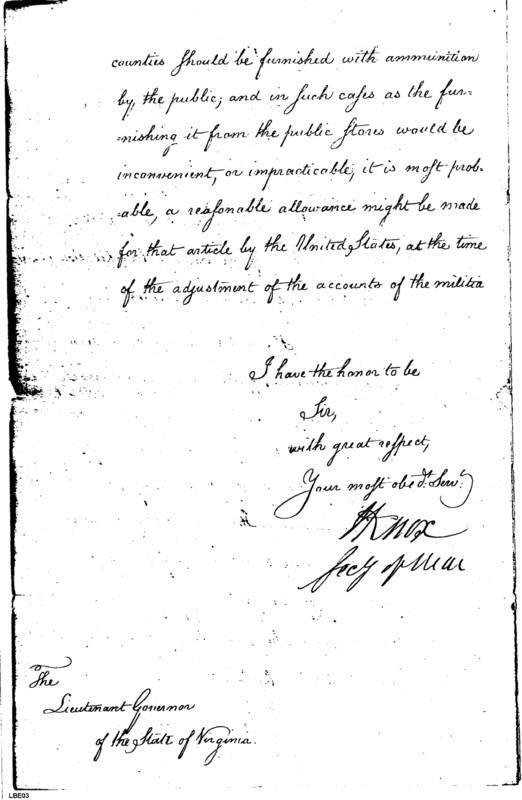 counties should be furnished with ammunition
by, the public; and in such cases as the fur=
=nishing it from the public stores would be
inconvenient, or impracticable; it is most prob=
=able, a reasonable allowance might be made
for that article by the United States, at the time
of the adjustment of the accounts of the militia
I have the honor to be
Sir,
with great respect,
Your most obedt. Servt.
HKnox
Secy of War
The
Lieutenant Governor
of the State of Virginia.
LBE03